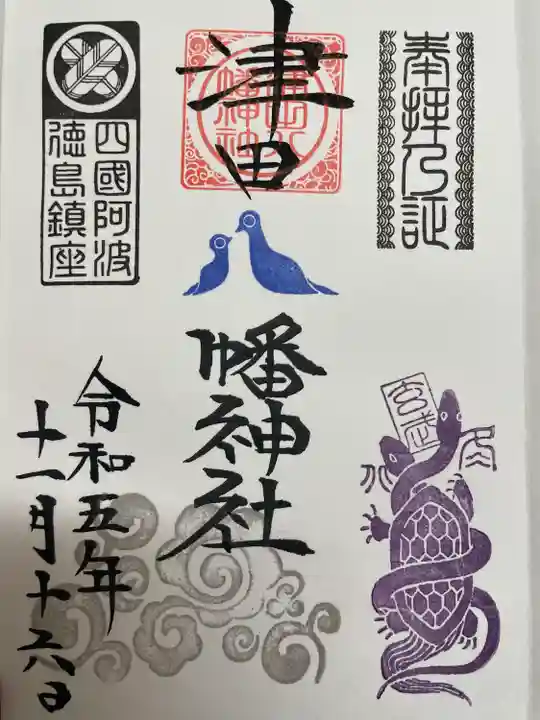 奉拝乃証
津田
幡神社
四國阿波
徳島鎮座
令和五年
十一月十六日
玄武
水